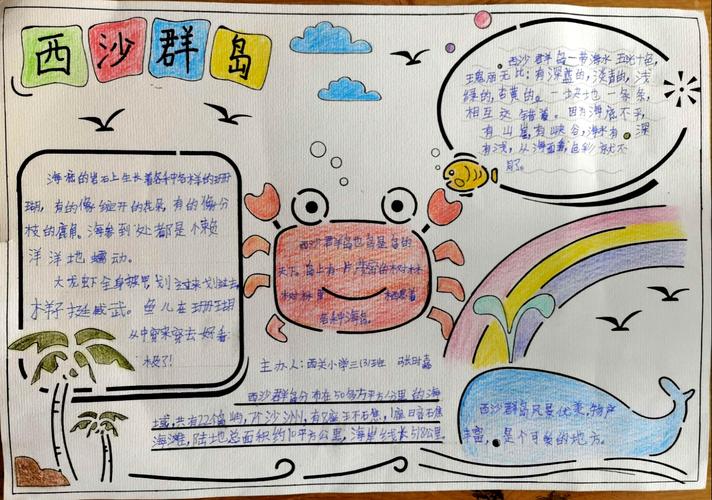 西沙群岛
西沙群岛一带海水五光十色,
瑰丽无比:有深蓝的,淡青的,浅
绿的,杏黄的。一块块,一条条,
相互交错着。因为海底高低不平,
有山崖,有峡谷,海水有深
有浅,从海面看,色彩就不
同了。
海底的岩石上生长着各种各样的珊
瑚,有的像绽开的花朵,有的像分
枝的鹿角。海参到处都是,懒
洋洋地蠕动。
大龙虾全身披甲,划过来,划过去,
样子挺威武。鱼儿在珊瑚
丛中穿来穿去,好看
极了!
西沙群岛也是鸟的
天下。岛上有一片片茂密的树林,
树林里栖息着
各种海鸟。
主办人:西关小学三(3)班
西沙群岛分布在50多万平方公里的海
域,共有22个岛屿,7个沙洲,有
海滩,陆地总面积约10平方公里,海岸线长518公里
西沙群岛风景优美,物产
丰富,是个可爱的地方。